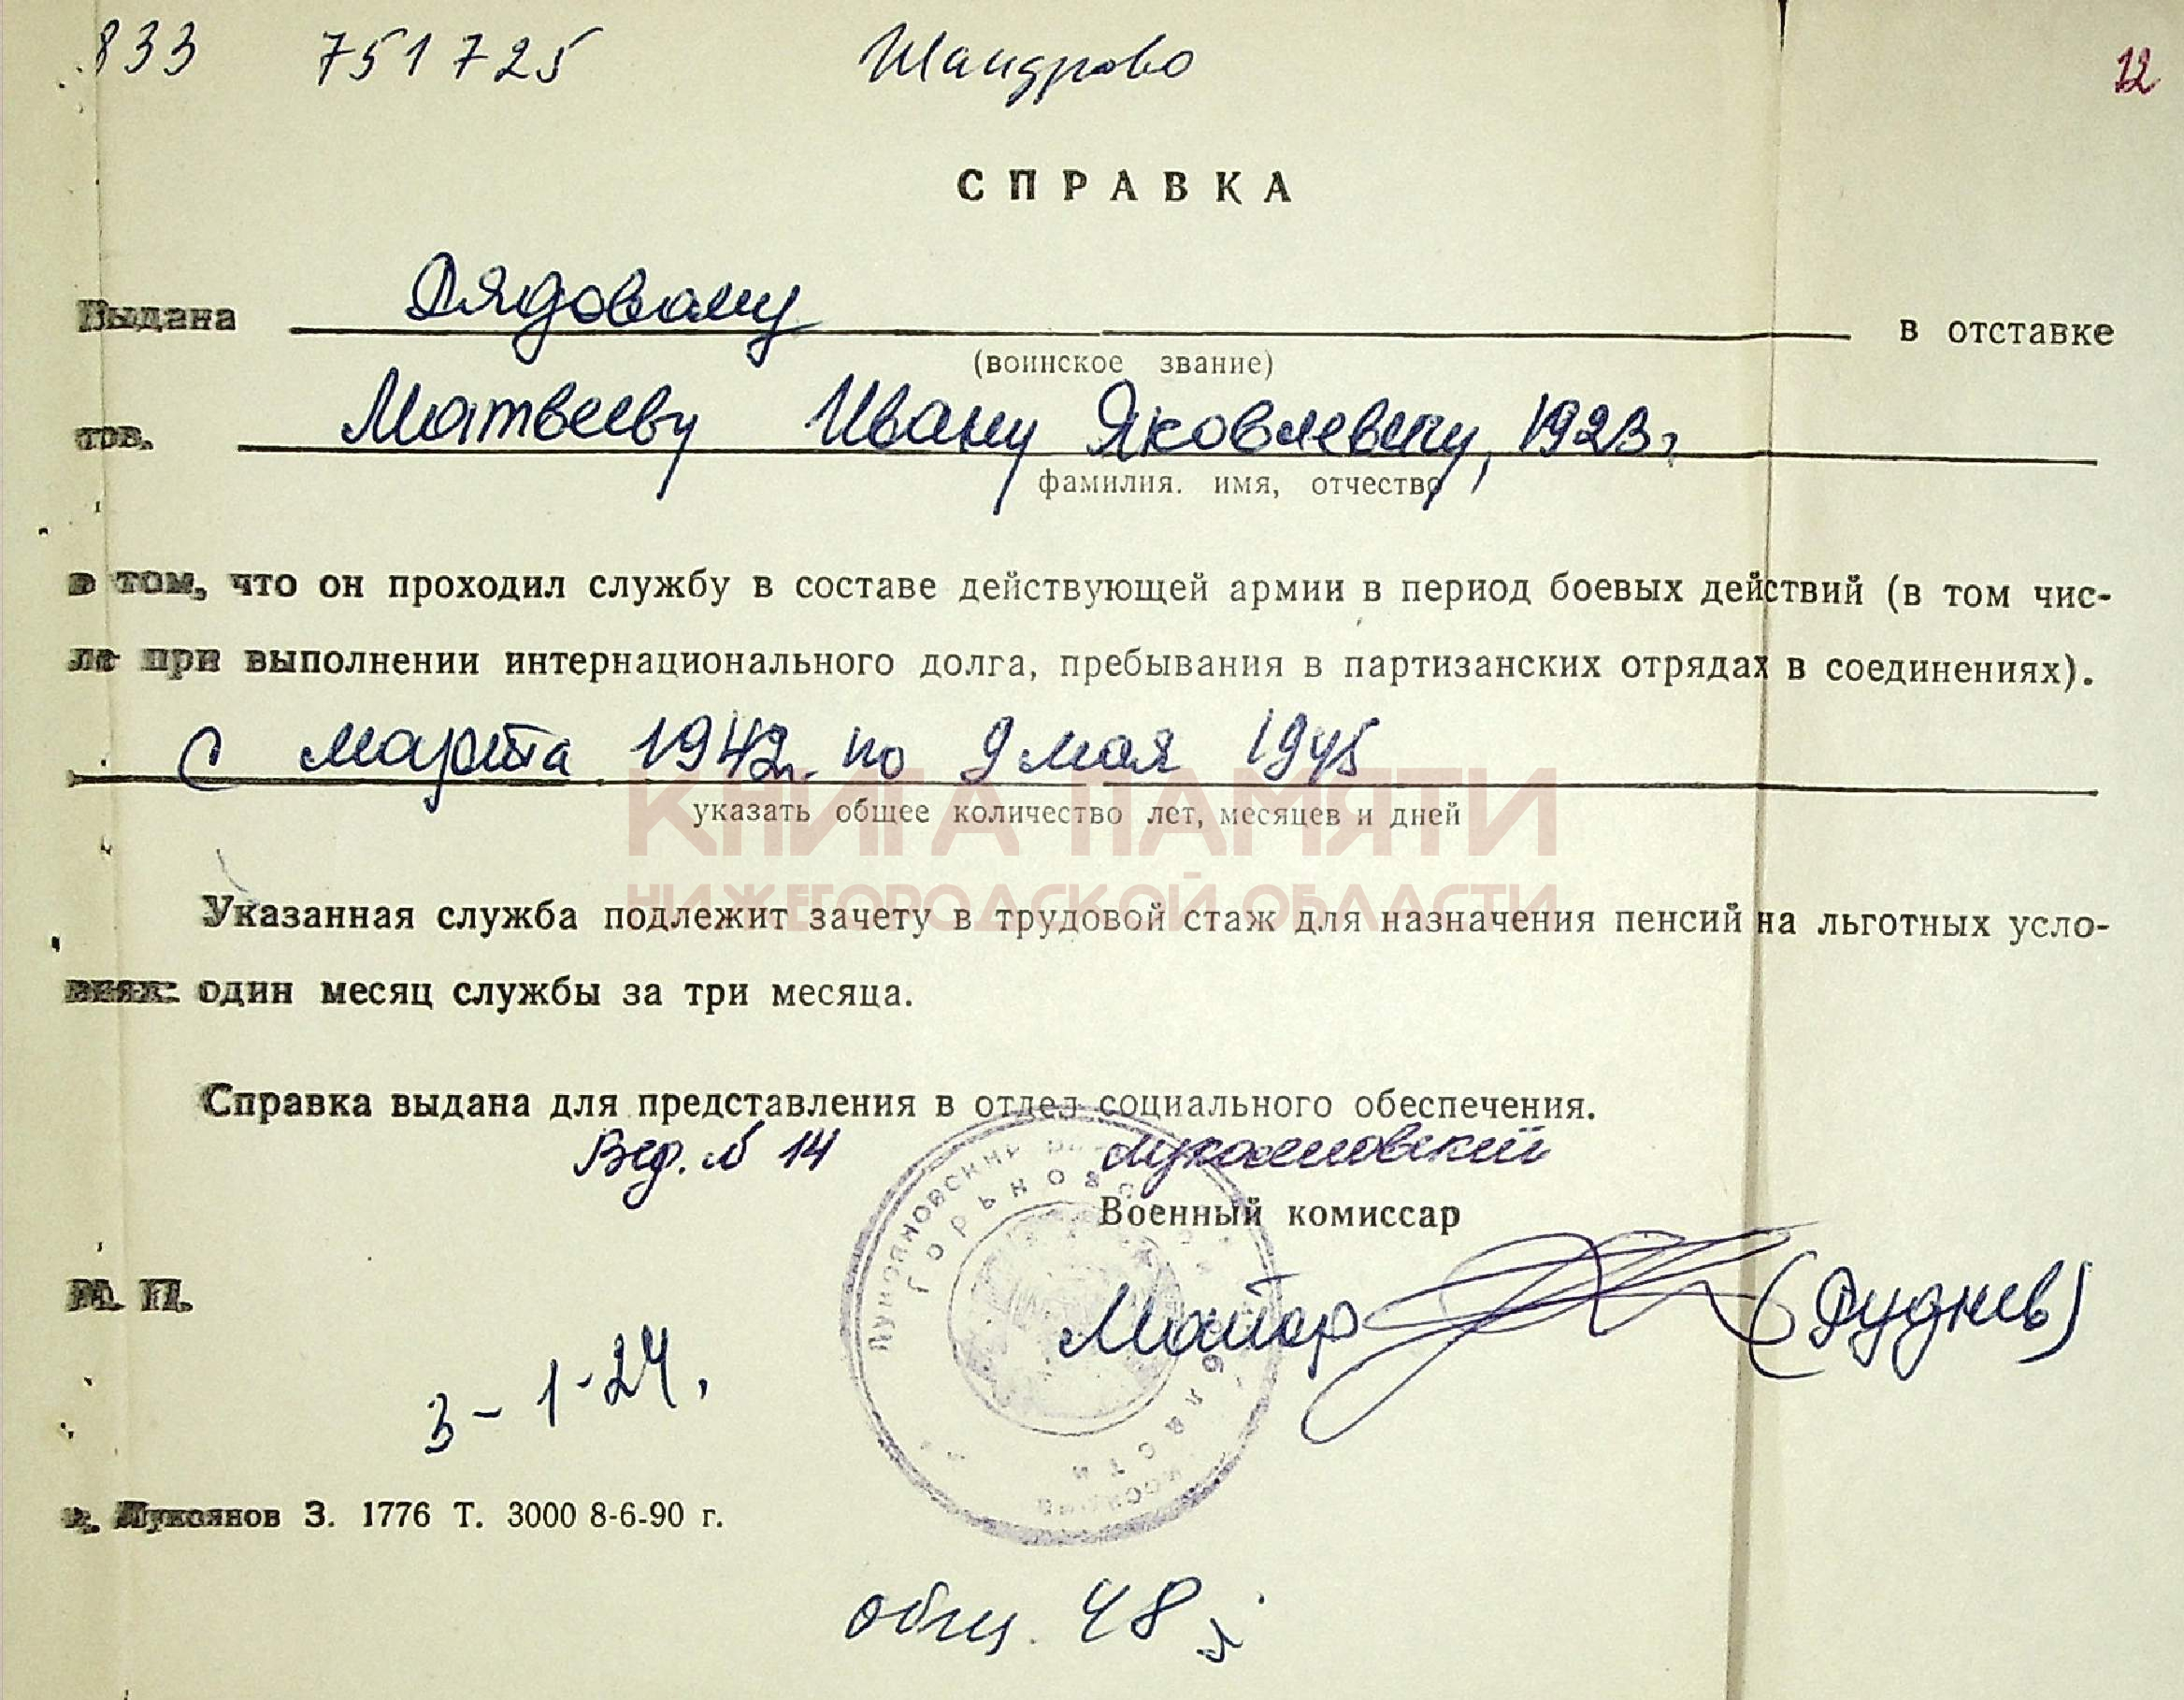 833 751725 Шандрово 12
СПРАВКА
Выдана Рядовому в отставке
(воинское звание)
тов. Матвееву Ивану Яковлевичу, 1923г
фамилия. имя, отчество
в том, что он проходил службу в составе действующей армии в период боевых действий (в том чис-
ле при выполнении интернационального долга, пребывания в партизанских отрядах в соединениях).
с марта 1942г. по 9 мая 1945
указать общее количество лет, месяцев и дней
КНИГА ПАМЯТИ
НИЖЕГОРОДСКОЙ ОБЛАСТИ
Указанная служба подлежит зачету в трудовой стаж для назначения пенсий на льготных усло-
виях: один месяц службы за три месяца.
Справка выдана для представления в отдел социального обеспечения.
Вед. № 14 Лукояновский
Военный комиссар
М. П. Майор (Руднев)
3-1-24.
г. Лукоянов З. 1776 Т. 3000 8-6-90 г.
общ. 48 л